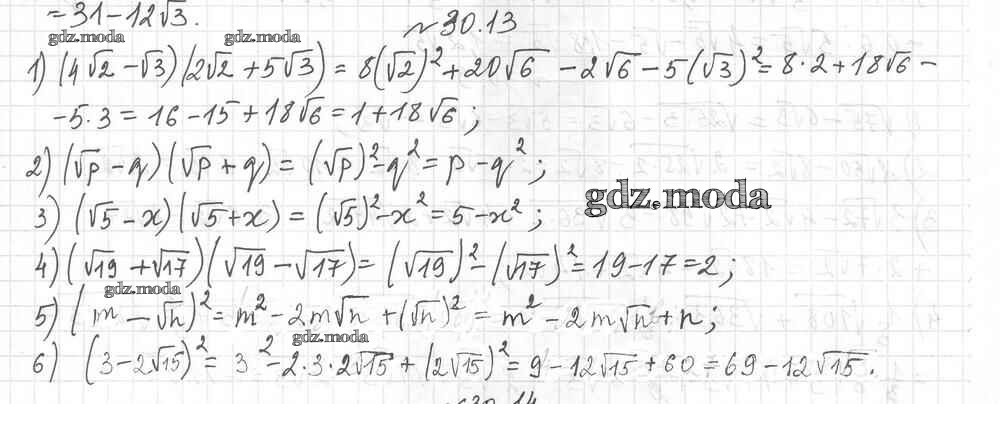 = 31 - 12√3.
№ 30.13
gdz.moda gdz.moda
1) (4√2 - √3)(2√2 + 5√3) = 8(√2)² + 20√6 - 2√6 - 5(√3)² = 8·2 + 18√6 -
- 5·3 = 16 - 15 + 18√6 = 1 + 18√6;
2) (√p - q)(√p + q) = (√p)² - q² = p - q²;
gdz.moda
3) (√5 - x)(√5 + x) = (√5)² - x² = 5 - x²;
4) (√19 + √17)(√19 - √17) = (√19)² - (√17)² = 19 - 17 = 2;
gdz.moda
5) (m - √n)² = m² - 2m√n + (√n)² = m² - 2m√n + n;
gdz.moda
6) (3 - 2√15)² = 3² - 2·3·2√15 + (2√15)² = 9 - 12√15 + 60 = 69 - 12√15.